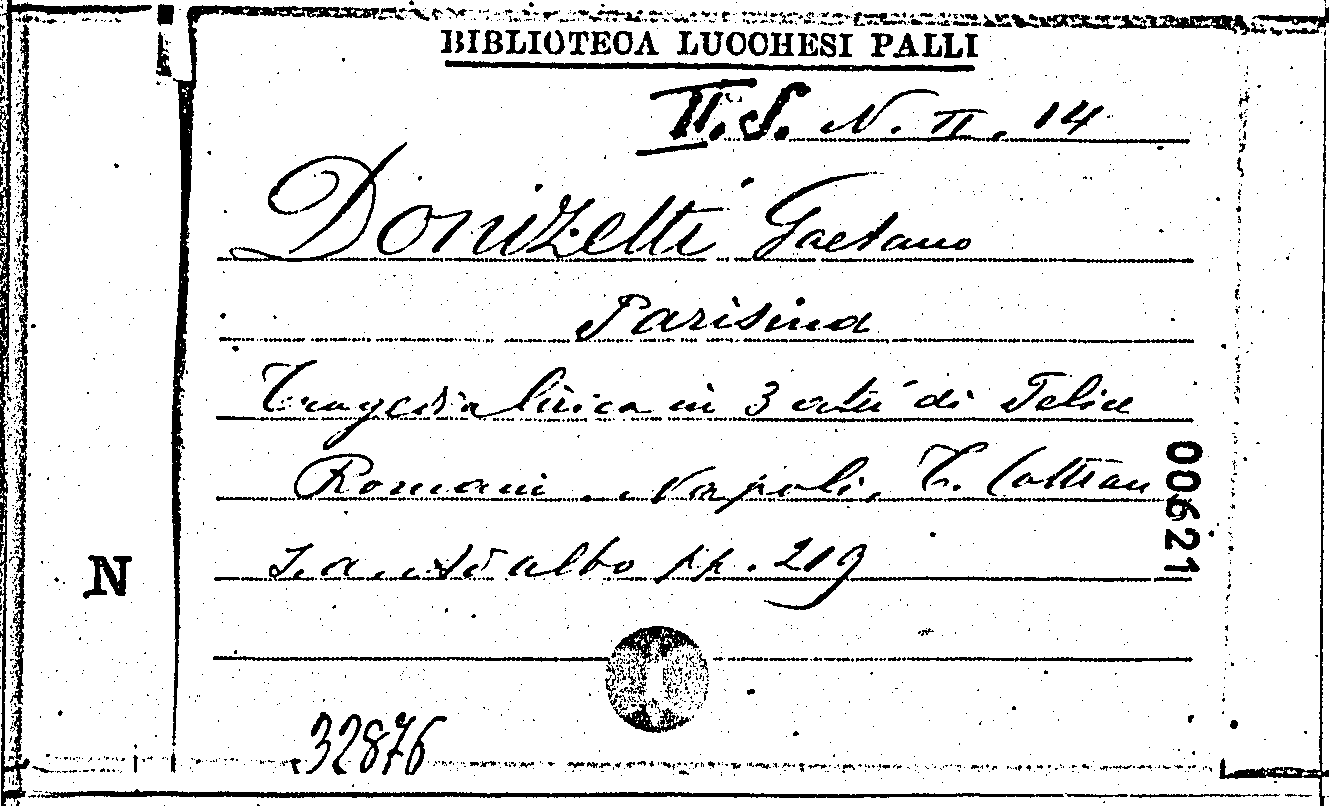 BIBLIOTECA LUCCHESI PALLI
II. S. N. II. 14
Donizetti Gaetano
Parisina
Tragedia lirica in 3 atti di Felice
Romani. Napoli, T. Cottrau
s. a. albo pp. 219
00621
N
32876